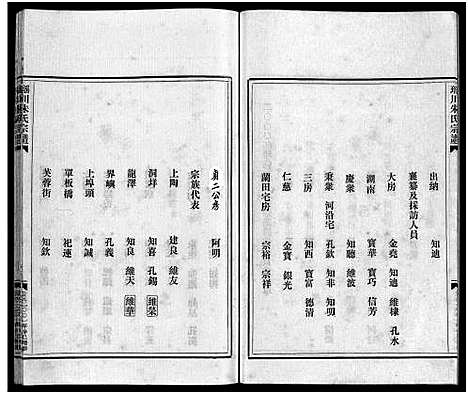 瑶川朱氏宗譜
出納 知廸
襄纂及採訪人員
大房 金堯 知迪 維棣 孔水
湖南 寶華 寶巧 信芳
慶衆 知聽 維波
秉衆 河沿宅 孔欽 知非 知明
三房 知西 寶富 德清
仁慈 金寶 銀光
蘭田宅房 宗裕 宗祥
貞二公房 阿明
宗族代表
上陶 建良 維友
洞垟 知喜 孔錫 維榮
龍潭 知良 維天 維華
界嶼 孔義
上埠頭 知誠
單板橋 祀連
芙蓉街 知欽